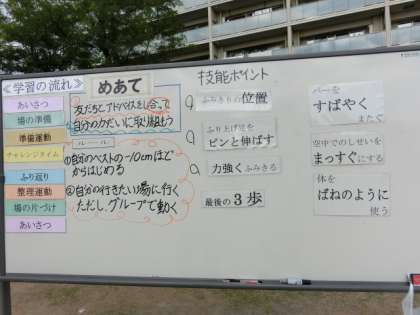 ≪学習の流れ≫
あいさつ
場の準備
準備運動
チャレンジタイム
ふり返り
整理運動
場の片づけ
あいさつ
めあて
友だちとアドバイスをし合って
自分のかだいに取り組もう
ルール
①自分のベストの-10cmほど
からはじめる
②自分の行きたい場に行く
ただし、グループで動く
技能ポイント
ふみきりの位置
ふり上げ足を
ピンと伸ばす
力強くふみきる
最後の3歩
バーを
すばやく
またぐ
空中でのしせいを
まっすぐにする
体を
ばねのように
使う